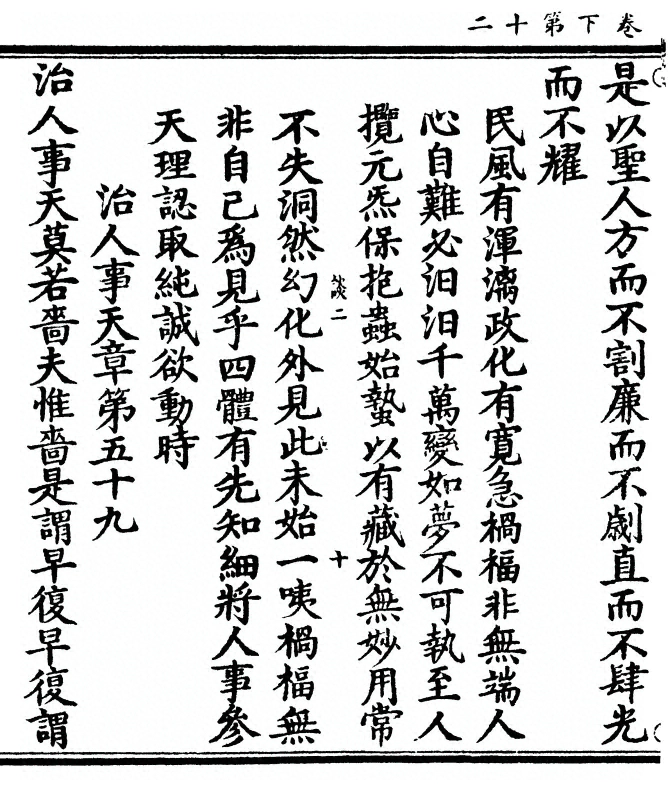 卷下第十二
是以聖人方而不割廉而不劌直而不肆光
而不耀
民風有渾漓政化有寬急禍福非無端人
心自難必汨汨千萬變如夢不可執至人
攬元炁保抱蟲始蟄以有藏於無妙用常
談二 十
不失洞然幻化外見此未始一咦禍福無
非自己為見乎四體有先知細將人事參
天理認取純誠欲動時
治人事天章第五十九
治人事天莫若嗇夫惟嗇是謂早復早復謂